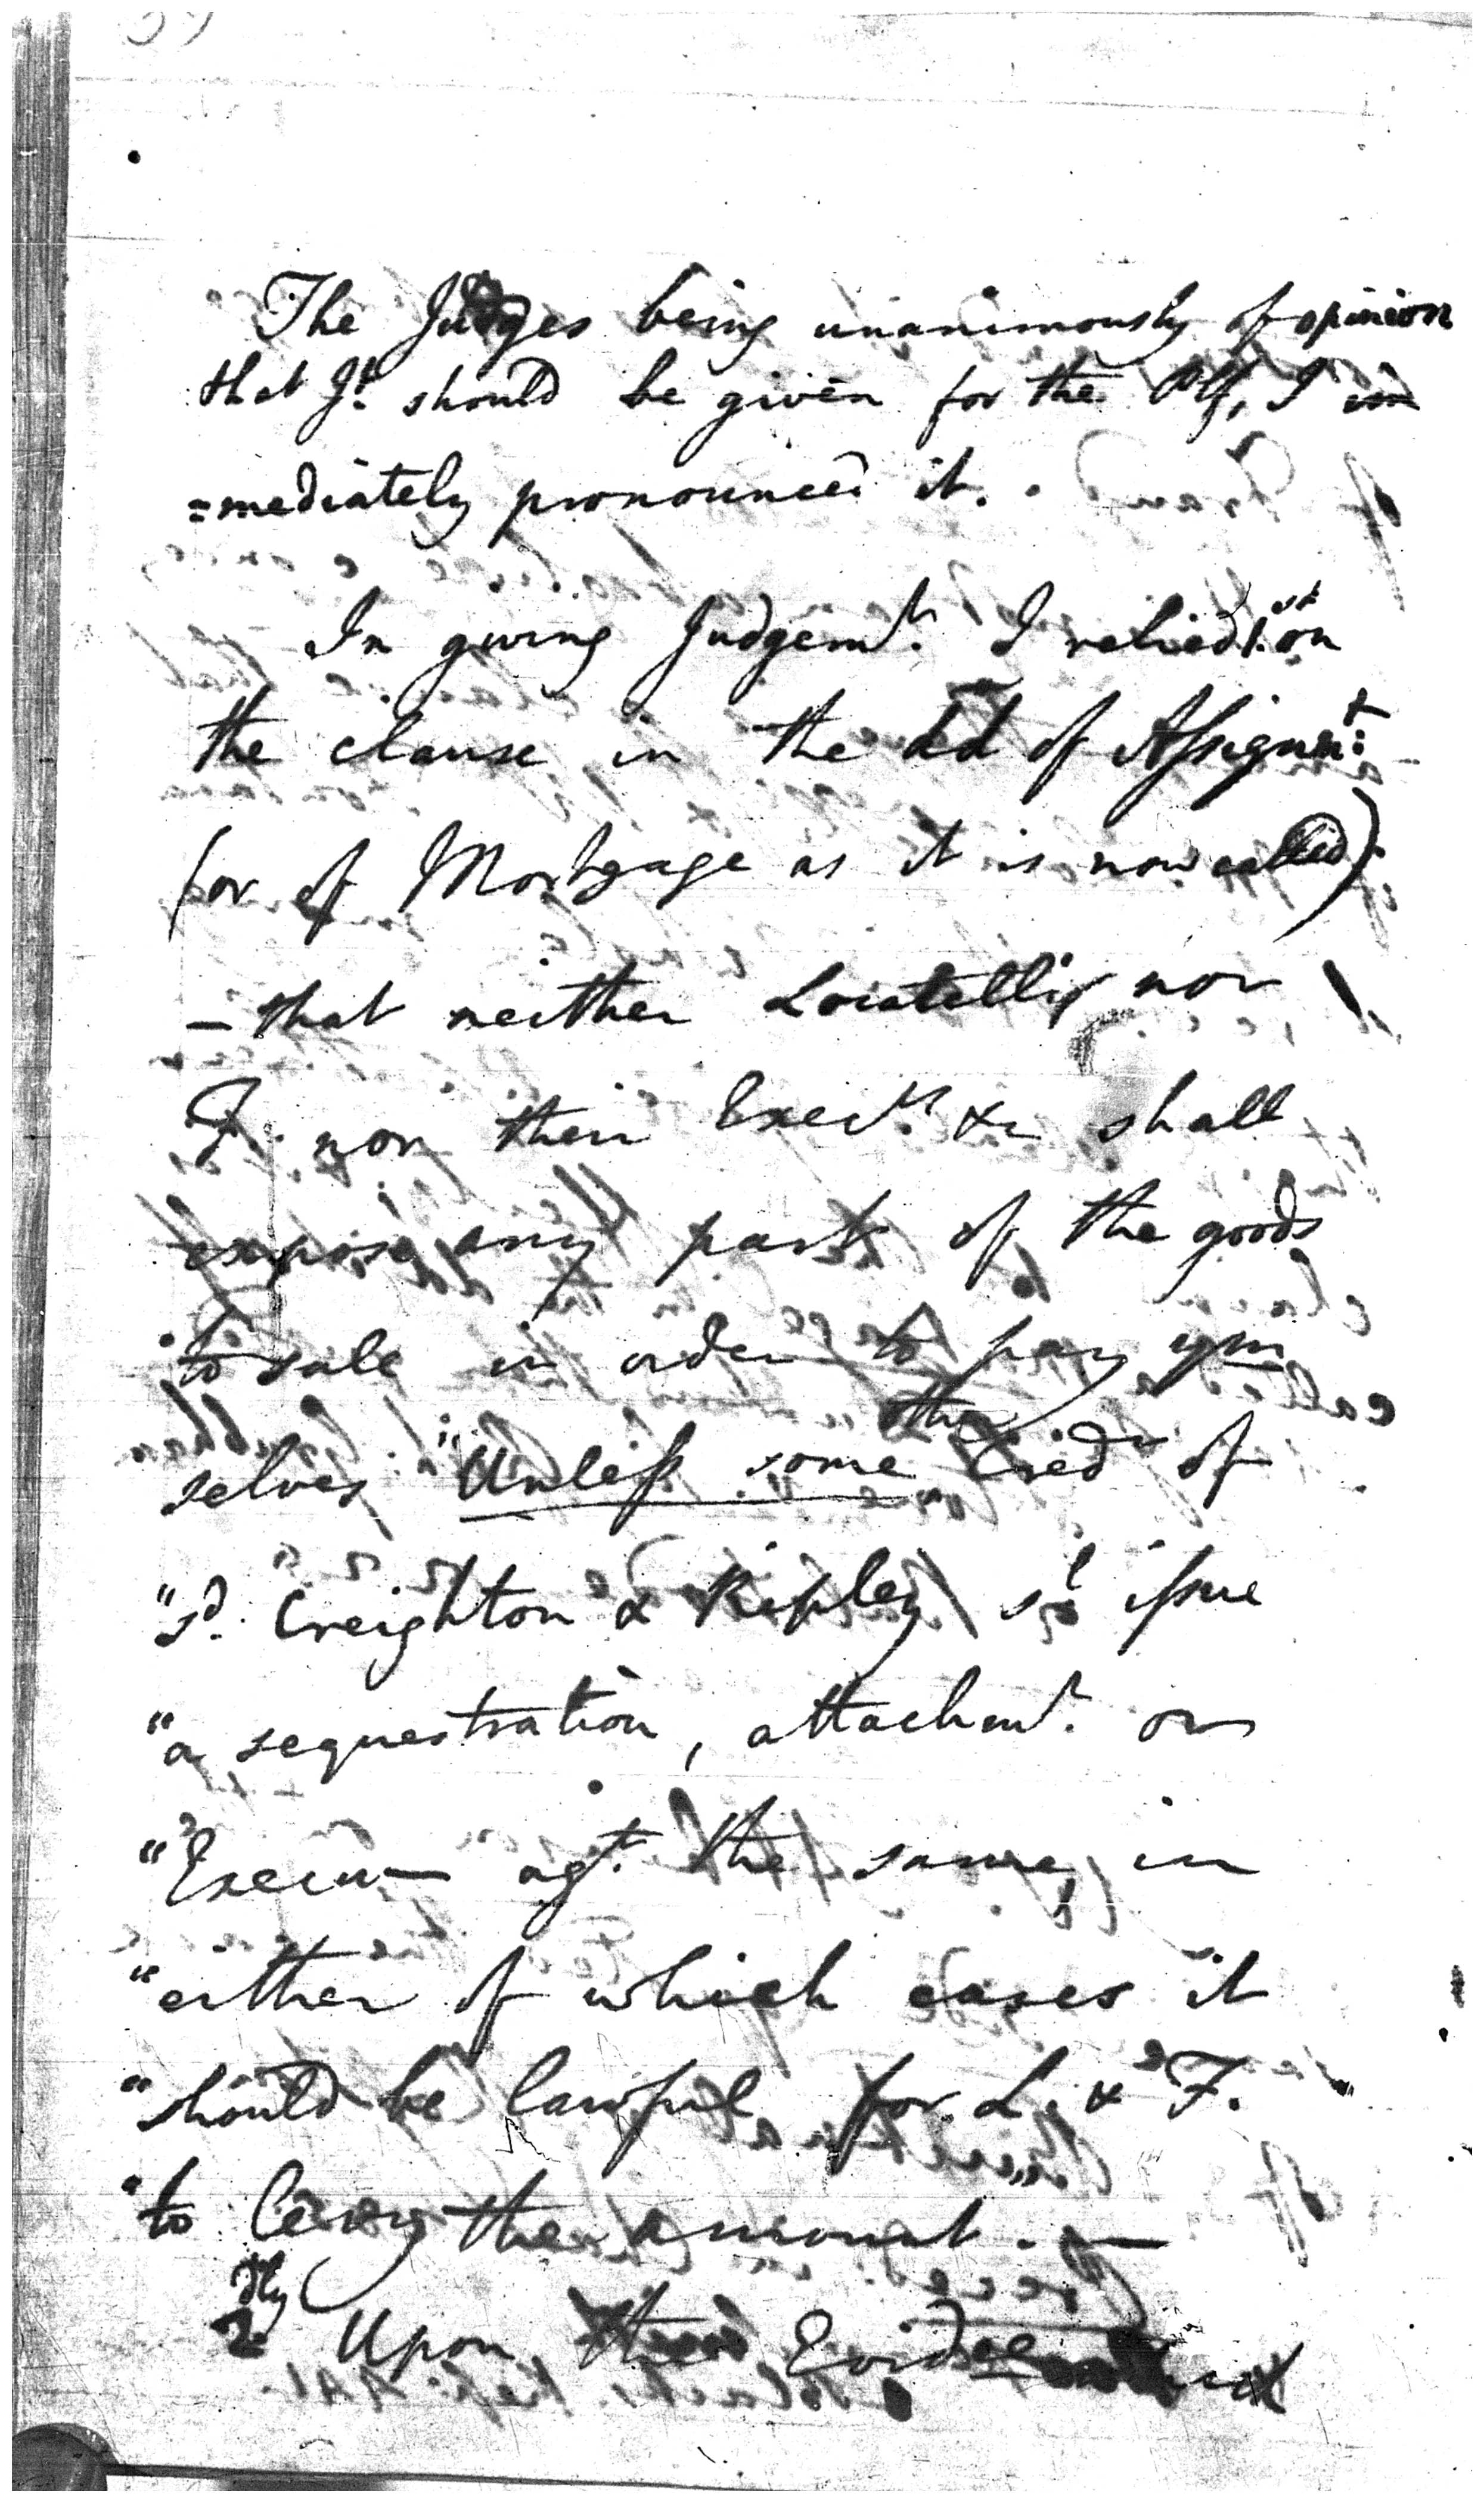 The Judges being unanimously of opinion
that Jt. should be given for the Plf, I im
=mediately pronounced it.
In giving Judgemt. I relied 1.st on
the clause in the dd of Assignmt:
(or of Mortgage as it is now called)
— that neither Locatelli nor
F. nor their Execrs. &c shall
expose any part of the goods
to sale in order to pay ym
selves "Unless some other Credrs of
"sd. Creighton & Ripley shd issue
"a sequestration, attachmt. or
"Execu— agt. the same, in
"either of which cases it
"should be lawful for L. & F.
"to levy the amount. —
2dly Upon the Evidce